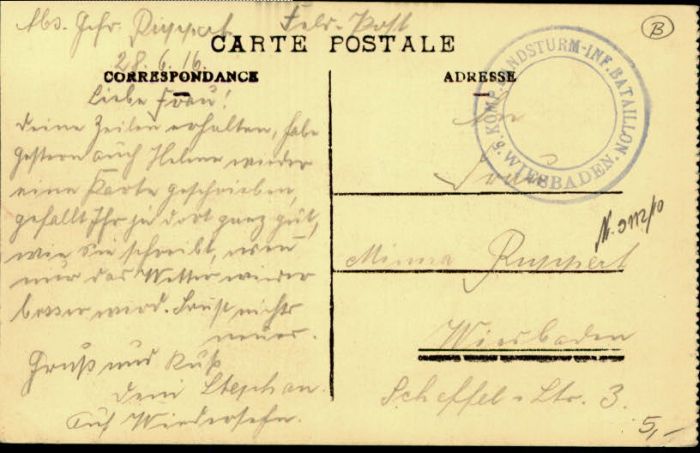 Abs. Gefr. Ruppert Feld-Post
B
CARTE POSTALE
28.6.16.
CORRESPONDANCE
ADRESSE
5. KOMP. LANDSTURM-INF. BATAILLON. WIESBADEN.
Liebe Frau!
Deine Zeilen erhalten, habe
gestern auch Helene wieder
eine Karte geschrieben,
gefällt Ihr ja dort ganz gut,
wie sie schreibt, wenn
nur das Wetter wieder
besser wird. Sonst nichts
neues.
Gruß und Kuß
dein Stephan.
Auf Wiedersehn.
An
Minna Ruppert
Wiesbaden
Scheffel-Str. 3.
5,-